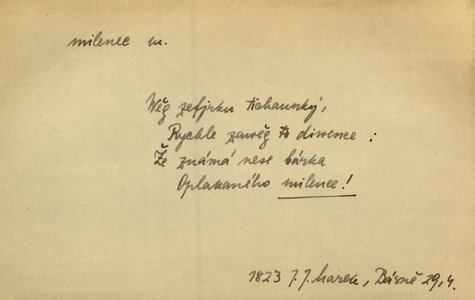 milenec m.
Wěg zefjrku tichaunký,
Rychle zawěg k diwence :
Že známá nese bárka
Oplakaného milence!
1823 J. J. Marek, Básně 29, 4.